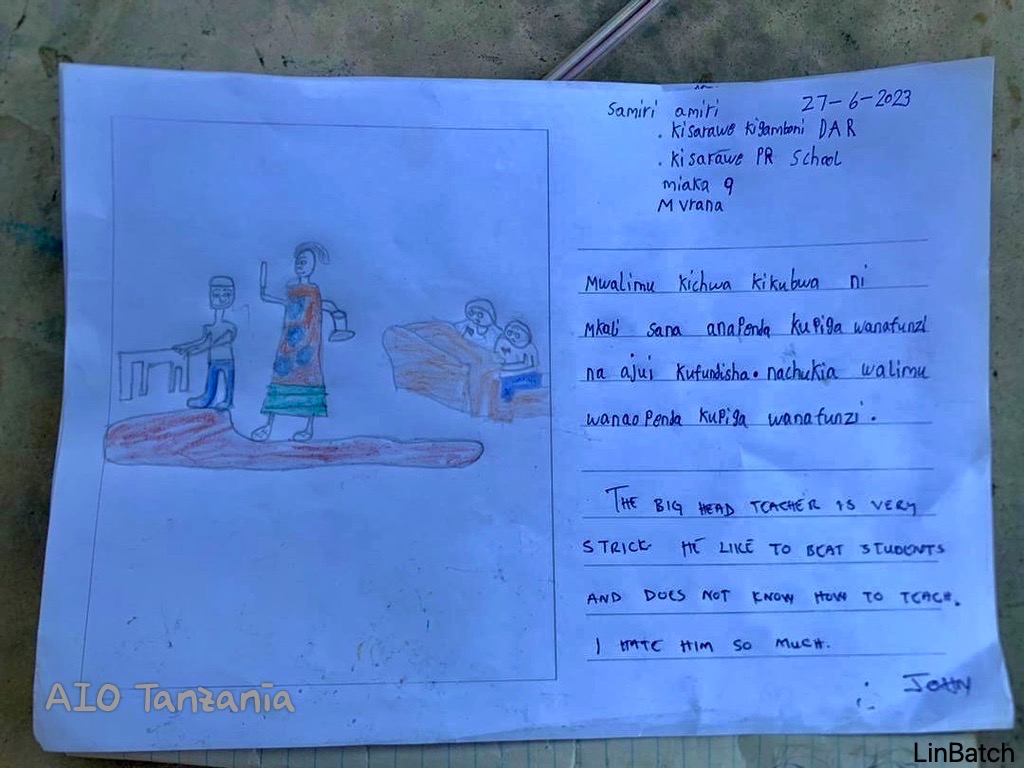 Samiri amiri 27-6-2023
. Kisarawe Kigamboni DAR
. Kisarawe PR School
miaka 9
Mvrana
Mwalimu kichwa kikubwa ni
Mkali sana anapenda kupiga wanafunzi
na ajui kufundisha. nachukia walimu
wanao Penda kupiga wanafunzi.
THE BIG HEAD TEACHER IS VERY
STRICK. HE LIKE TO BEAT STUDENTS
AND DOES NOT KNOW HOW TO TEACH.
I HATE HIM SO MUCH.
JOHN
AIO Tanzania
LinBatch